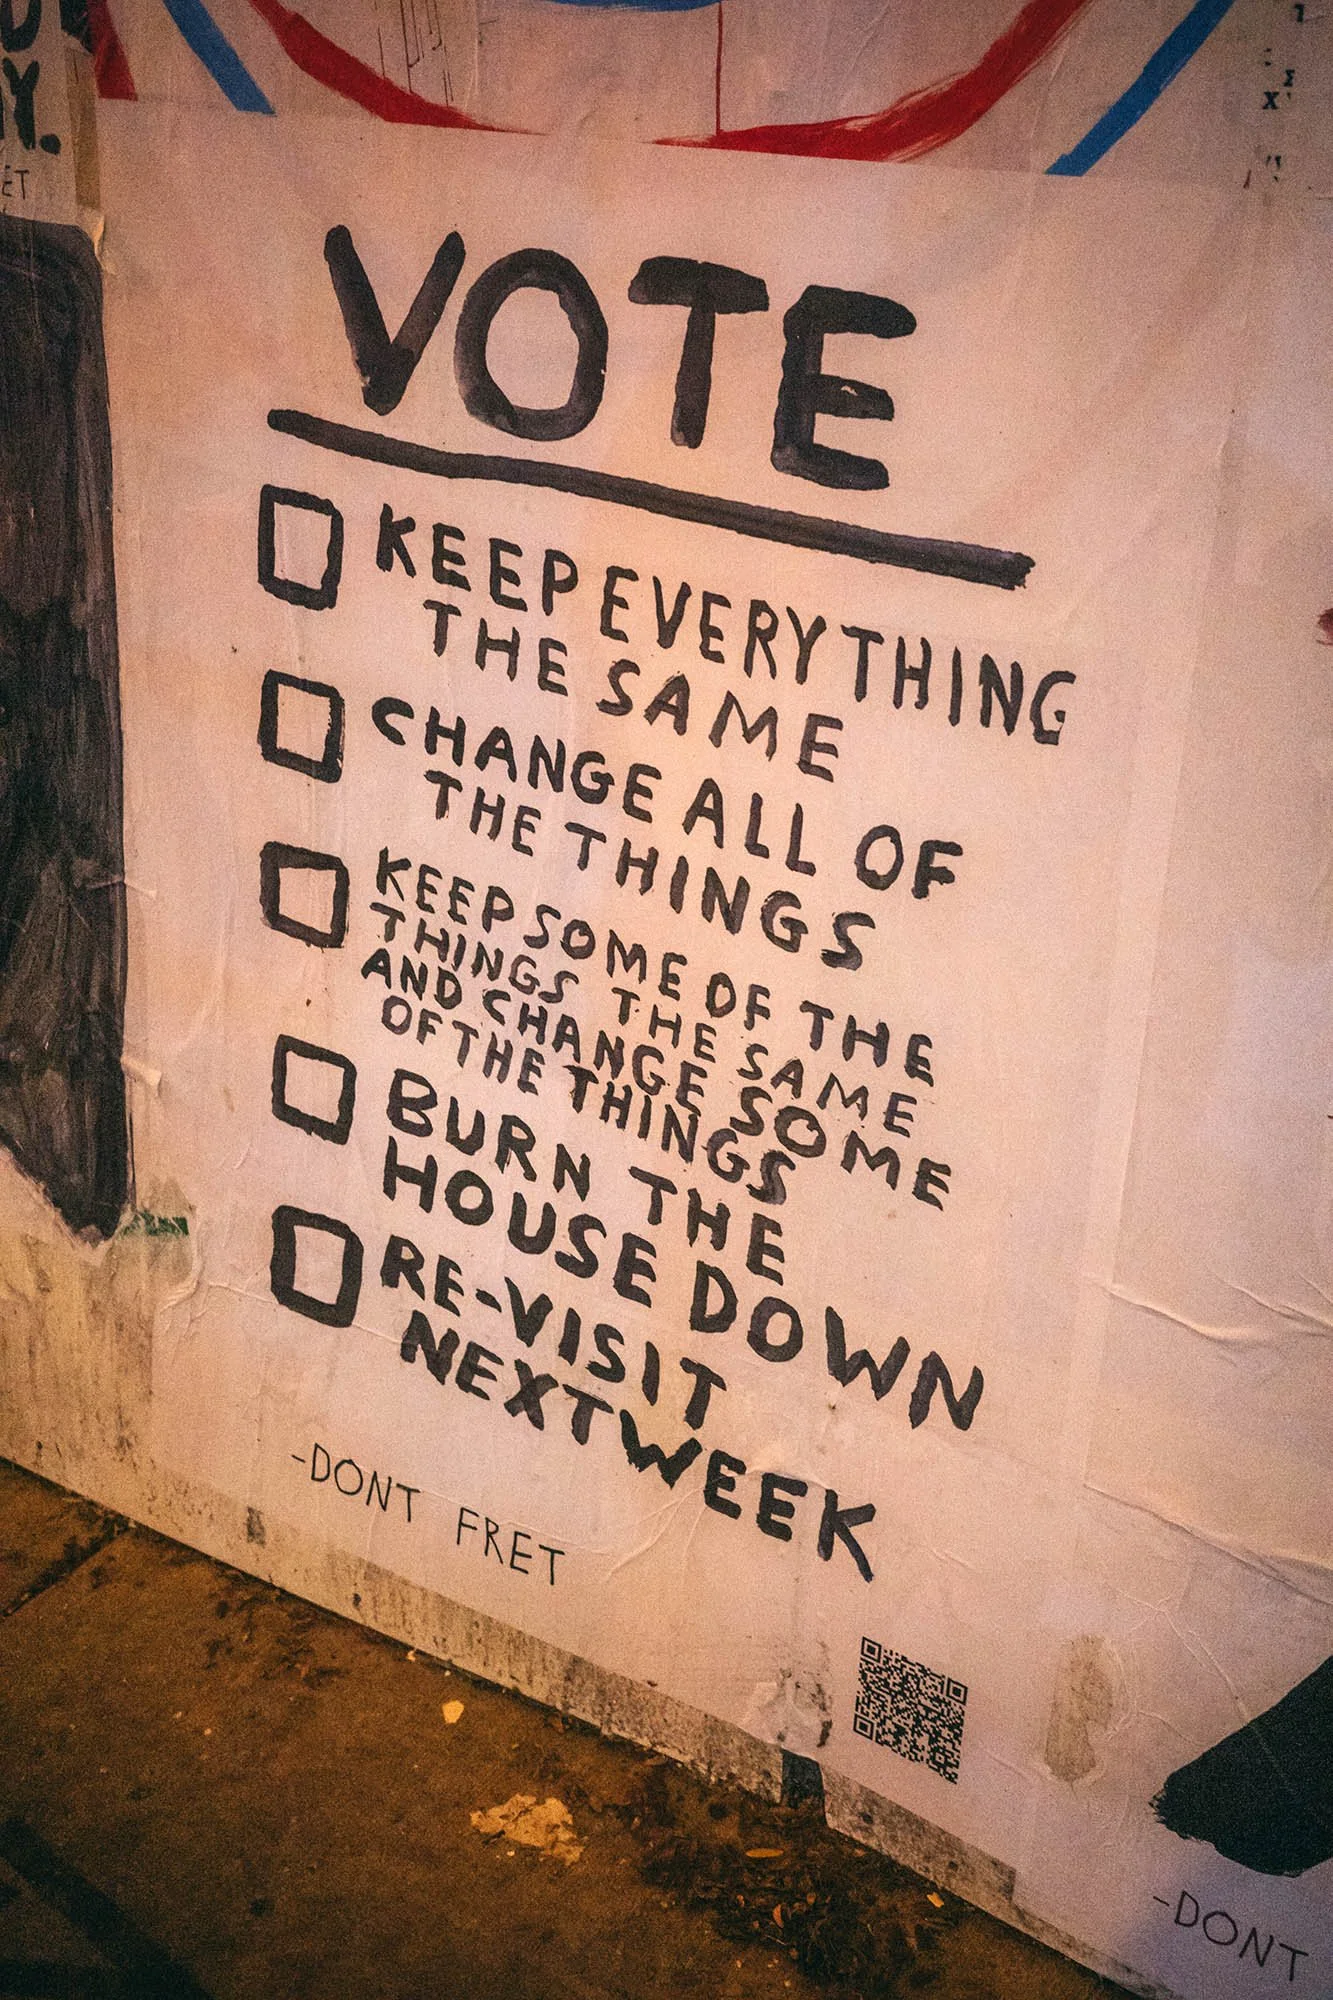 VOTE
KEEP EVERYTHING
THE SAME
CHANGE ALL OF
THE THINGS
KEEP SOME OF THE
THINGS THE SAME
AND CHANGE SOME
OF THE THINGS
BURN THE
HOUSE DOWN
RE-VISIT
NEXT WEEK
-DONT FRET
-DONT